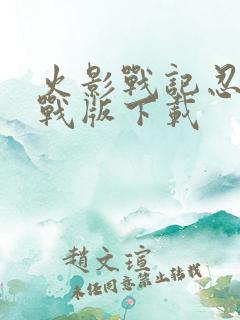 火影戰記忍
戰版下載
趙文瑄
未經同意禁止轉載